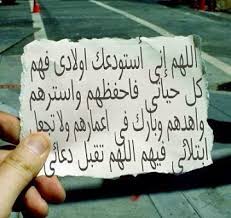 اللهم إني أستودعك اولادى فهم
كل حياتي فاحفظهم واسترهم
واهدهم وبارك فى اعمارهم ولا تجعل
ابتلائي فيهم اللهم تقبل دعائي